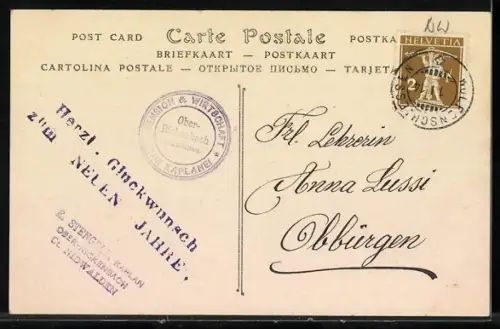 NW
POST CARD Carte Postale POSTKA
BRIEFKAART - POSTKAART
CARTOLINA POSTALE - ОТКРЫТОЕ ПИСЬМО - TARJETA
HELVETIA
2
PENSION & WIRTSCHAFT
Ober-
ZUR KAPLANEI
Herzl. Glückwunsch
zum NEUEN JAHRE.
KAPLAN
OBERRICKENBACH
Ct. NIDWALDEN
Frl. Lehrerin
Anna Lussi
Obbürgen